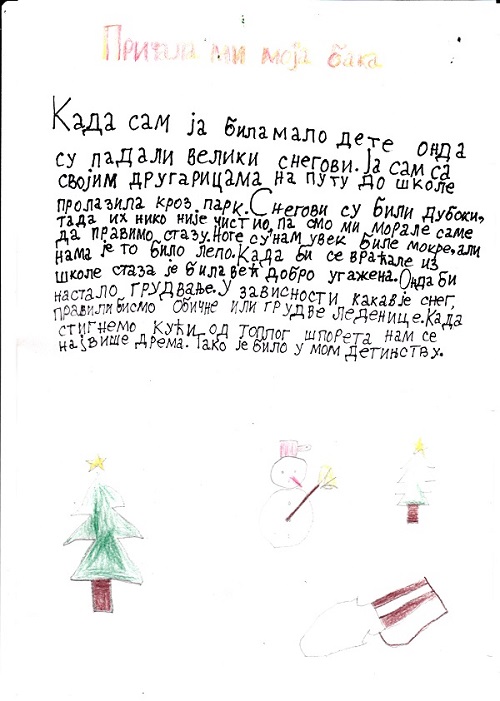 Причала ми моја бака
Када сам ја била мало дете онда
су падали велики снегови. Ја сам са
својим другарицама на путу до школе
пролазила кроз парк. Снегови су били дубоки,
тада их нико није чистио, па смо ми морале саме
да правимо стазу. Ноге су нам увек биле мокре, али
нама је то било лепо. Када би се враћале из
школе стаза је била већ добро угажена. Онда би
настало грудвање. У зависности какав је снег,
правили бисмо обичне или грудве леденице. Када
стигнемо кући од топлог шпорета нам се
највише дрема. Тако је било у мом детинству.